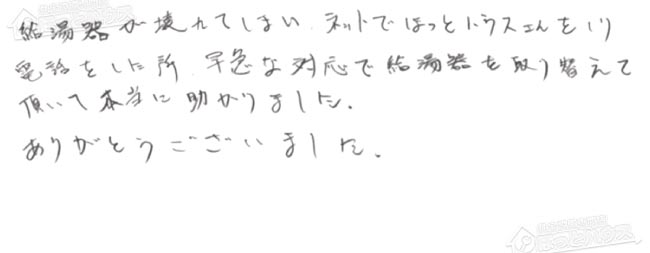 給湯器が壊れてしまい、ネットでほっとハウスさんを知り
電話をした所、早急な対応で給湯器を取り替えて
頂いて本当に助かりました。
ありがとうございました。
ほっとハウス